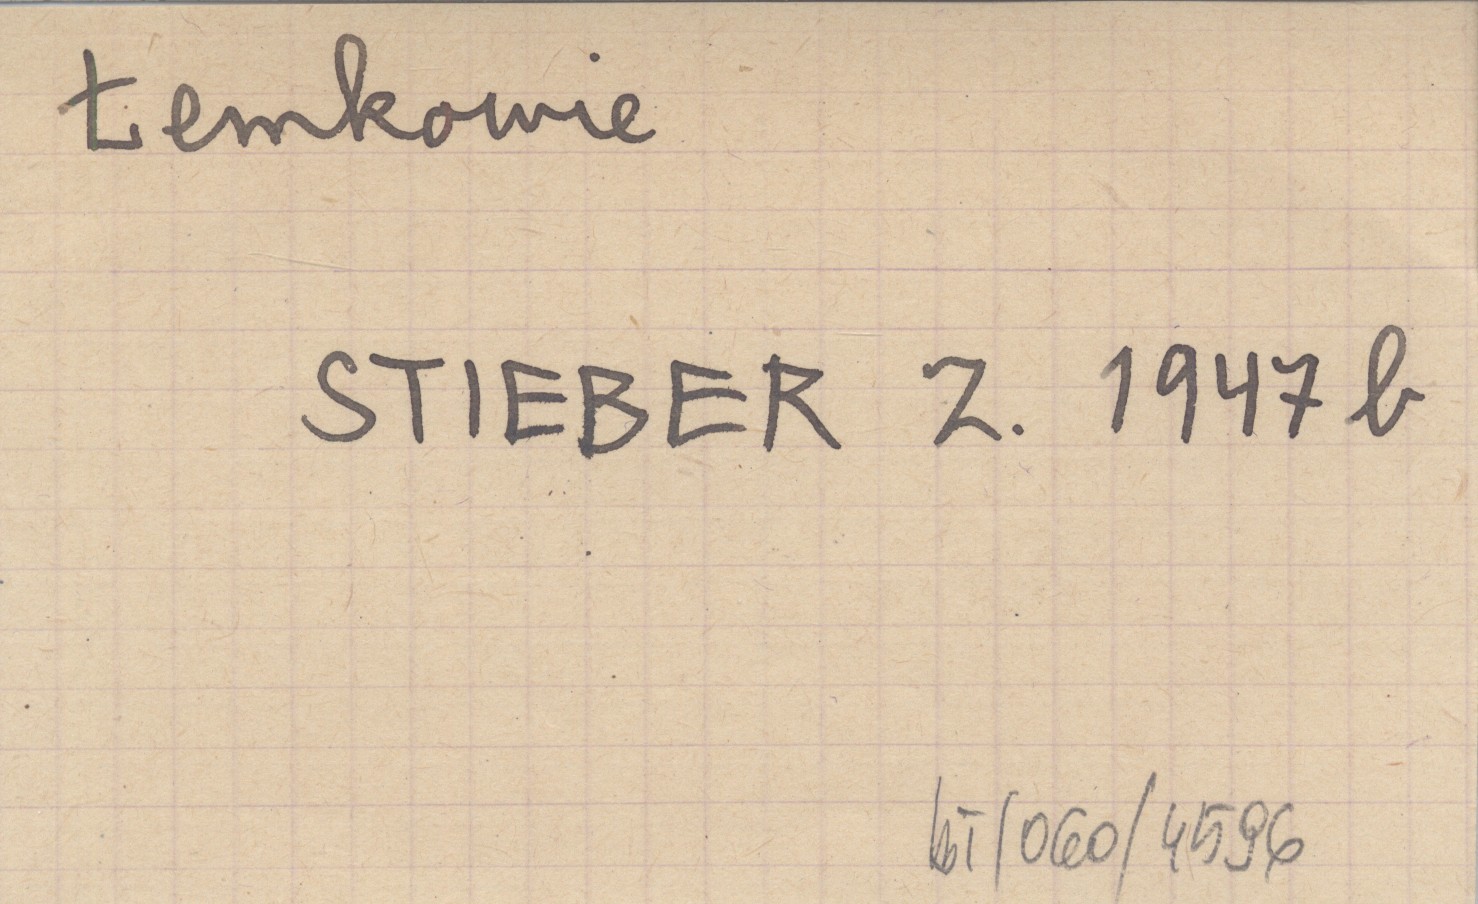 Łemkowie
STIEBER Z. 1947 b
/060/4596